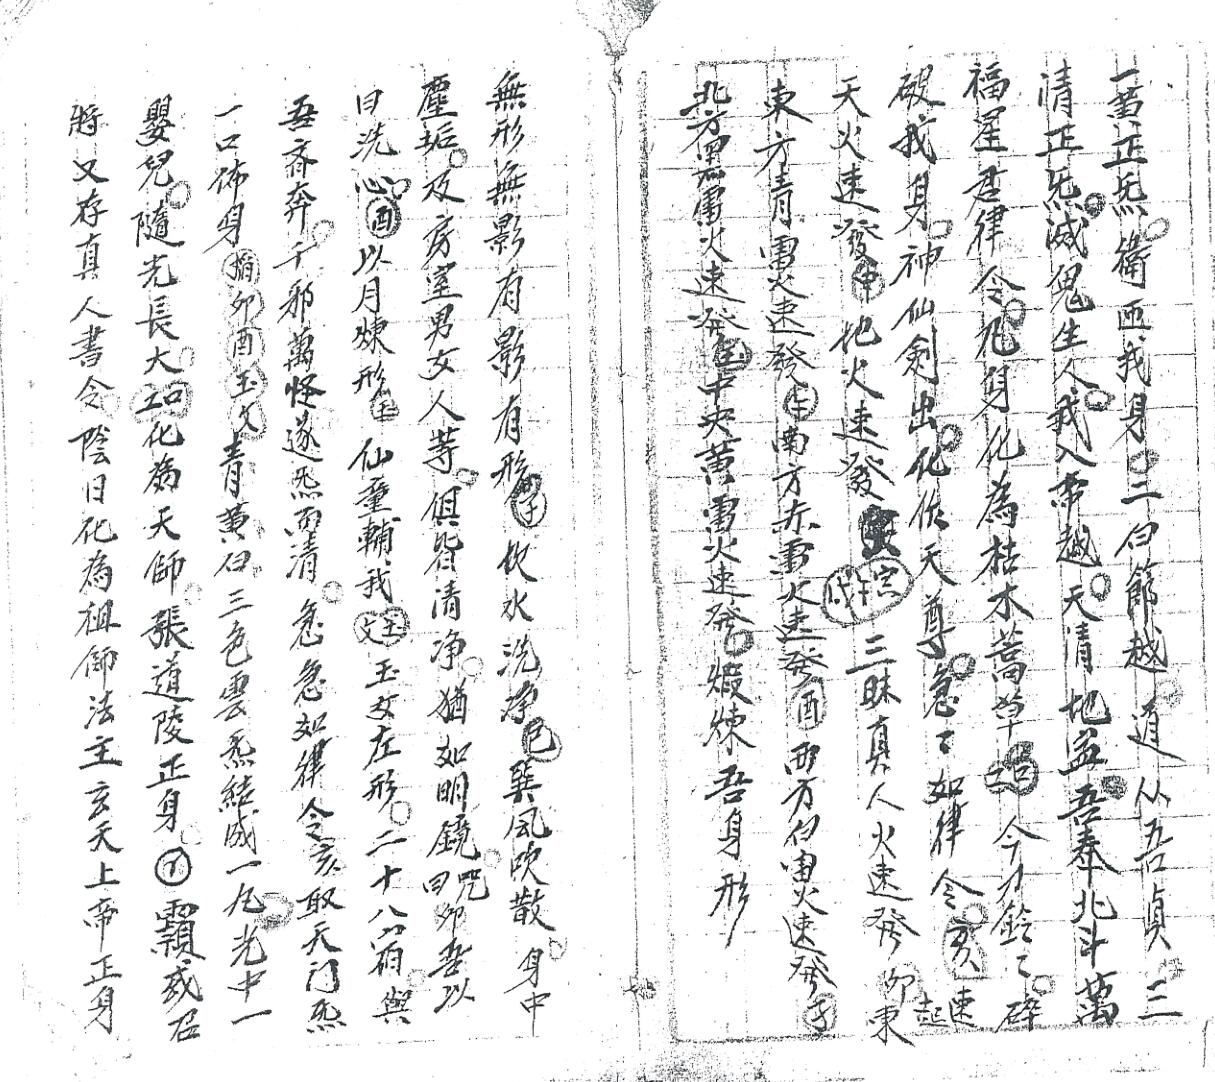 一黃正炁衛匝我身二白節越道从吾貞三
清正炁滅鬼生人我入帝越天清地益吾奉北斗萬
福星君律令凡身化為枯木蒿草中今才鈴〻碎
破我身神仙劍出化作天尊急〻如律令亥速起
天火速發申地火速發戌三昧真人火速發卯東
東方青雷火速發午南方赤雷火速發酉西方白雷火速發子
北方黑雷火速發中央黃雷火速發煅煉吾身形
無形無影有影有形子飲水洗净巳巽風吹散身中
塵垢及房室男女人等俱皆清净猶如明鏡咒曰卯吾以
日洗心酉以月煉形仙童輔我玉文玉女左形二十八宿與
吾斉奔千邪萬怪遂炁而清急急如律令亥取天门炁
一口佈身掐卯酉玉文青黃白三色雲炁結成一丸光中一
嬰兒隨光長大化為天師張道陵正身召
將又存真人書令陰日化為祖師法主玄天上帝正身